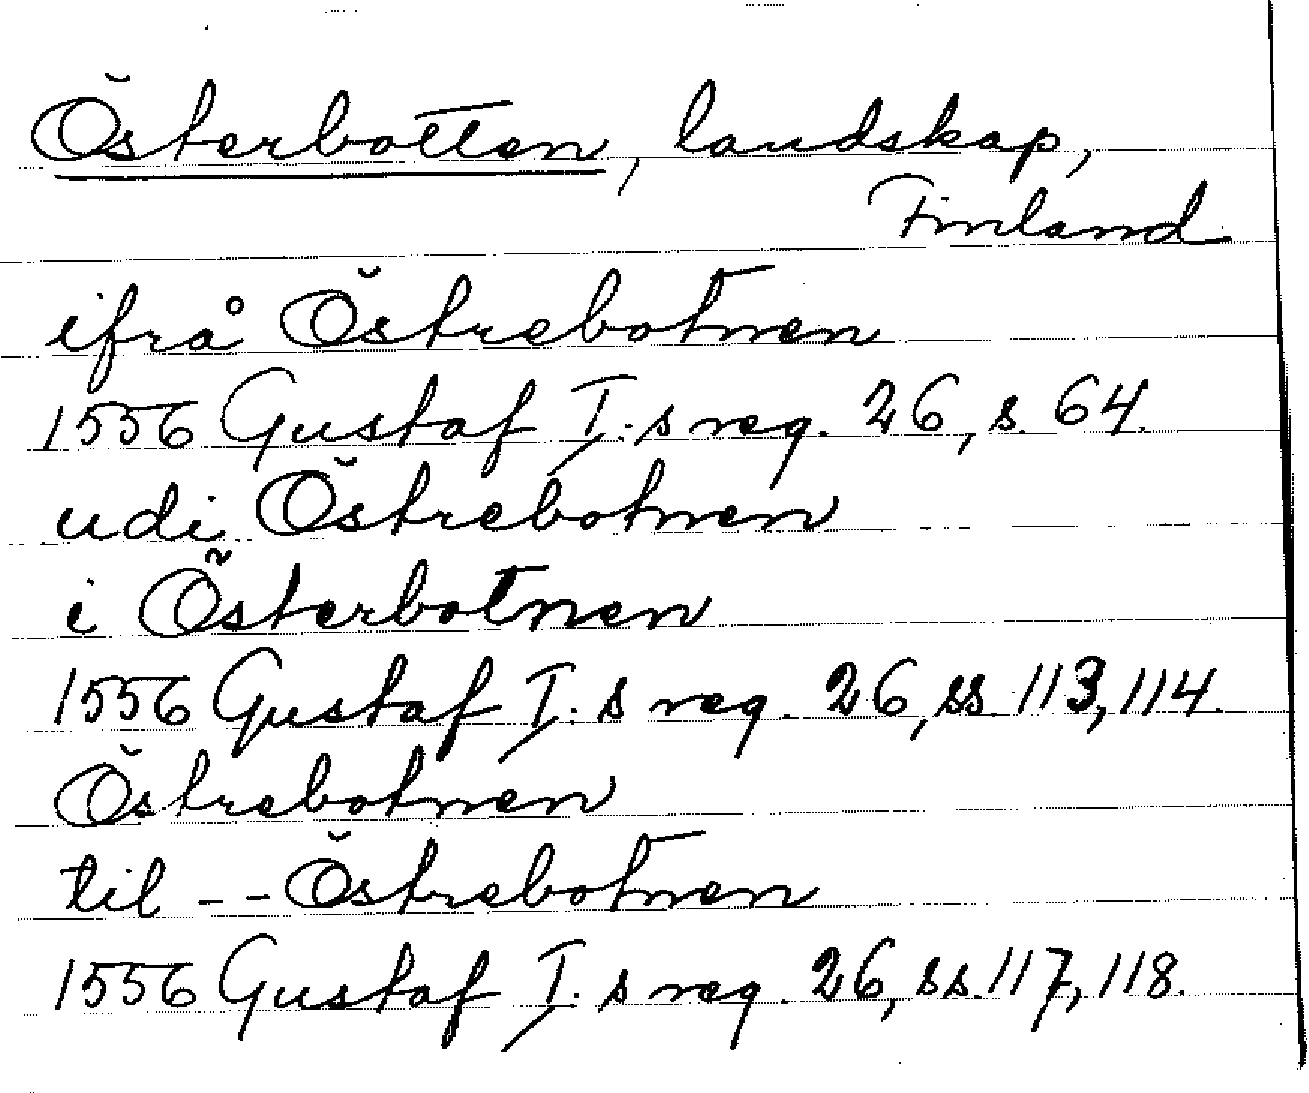 Österbotten, landskap,
Finland
ifrå Östrebotnen
1556 Gustaf I:s reg. 26, s. 64.
udi Östrebotnen
i Österbotnen
1556 Gustaf I:s reg. 26, ss. 113, 114.
Östrebotnen
til -- Östrebotnen
1556 Gustaf I:s reg. 26, ss. 117, 118.